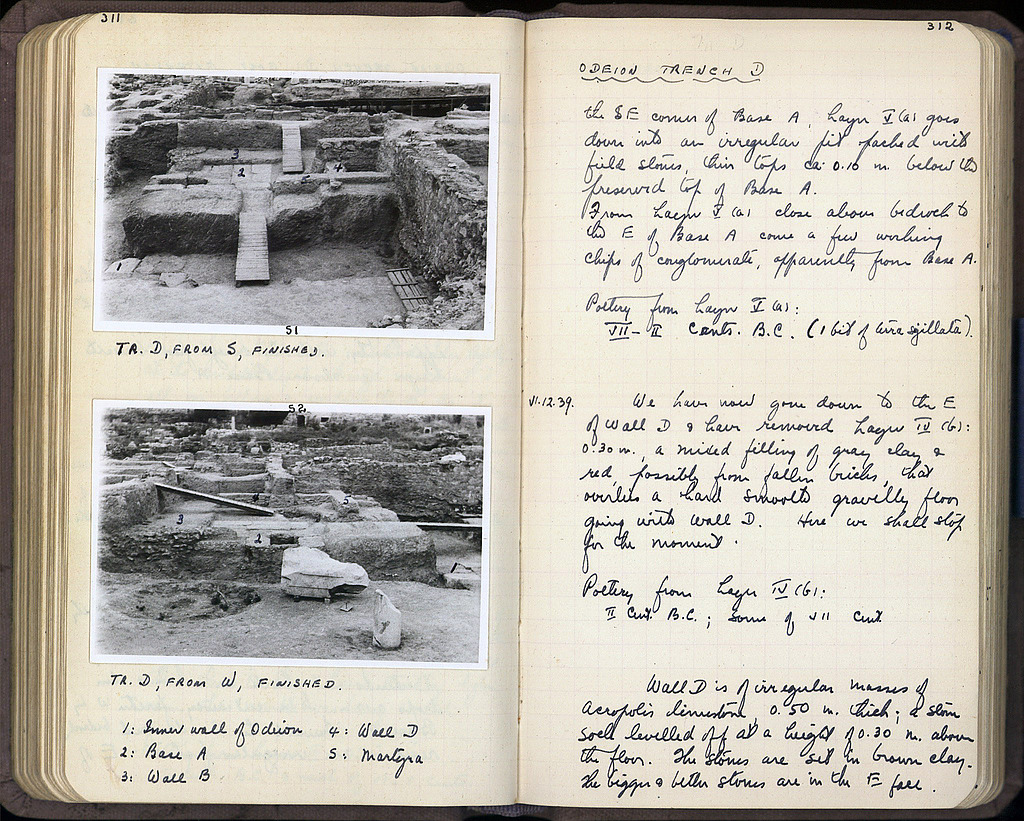 311
3
2
4
1
51
TR. D, FROM S, FINISHED.
52
4
5
3
2
TR. D, FROM W, FINISHED.
1: Inner wall of Odeion 4: Wall D
2: Base A 5: Martyra
3: Wall B
312
ODEION TRENCH D
the SE corner of Base A, Layer V (a) goes
down into an irregular pit packed with
field stones, their tops ca. 0.10 m. below the
preserved top of Base A.
From Layer V (a) close above bedrock to
the E of Base A come a few working
chips of conglomerate, apparently from Base A.
Pottery from Layer V (a):
VII - II Cents. B.C. (1 bit of terra sigillata).
VI.12.39. We have now gone down to the E
of Wall D & have removed Layer IV (b):
0.30 m., a mixed filling of gray clay &
red, possibly from fallen bricks, that
overlies a hard smooth gravelly floor
going with Wall D. Here we shall stop
for the moment.
Pottery from Layer IV (b):
II Cent. B.C.; some of VII Cent.
Wall D is of irregular masses of
Acropolis limestone, 0.50 m. thick; a stone
socle levelled off at a height of 0.30 m. above
the floor. The stones are set in brown clay.
The bigger & better stones are in the E face.